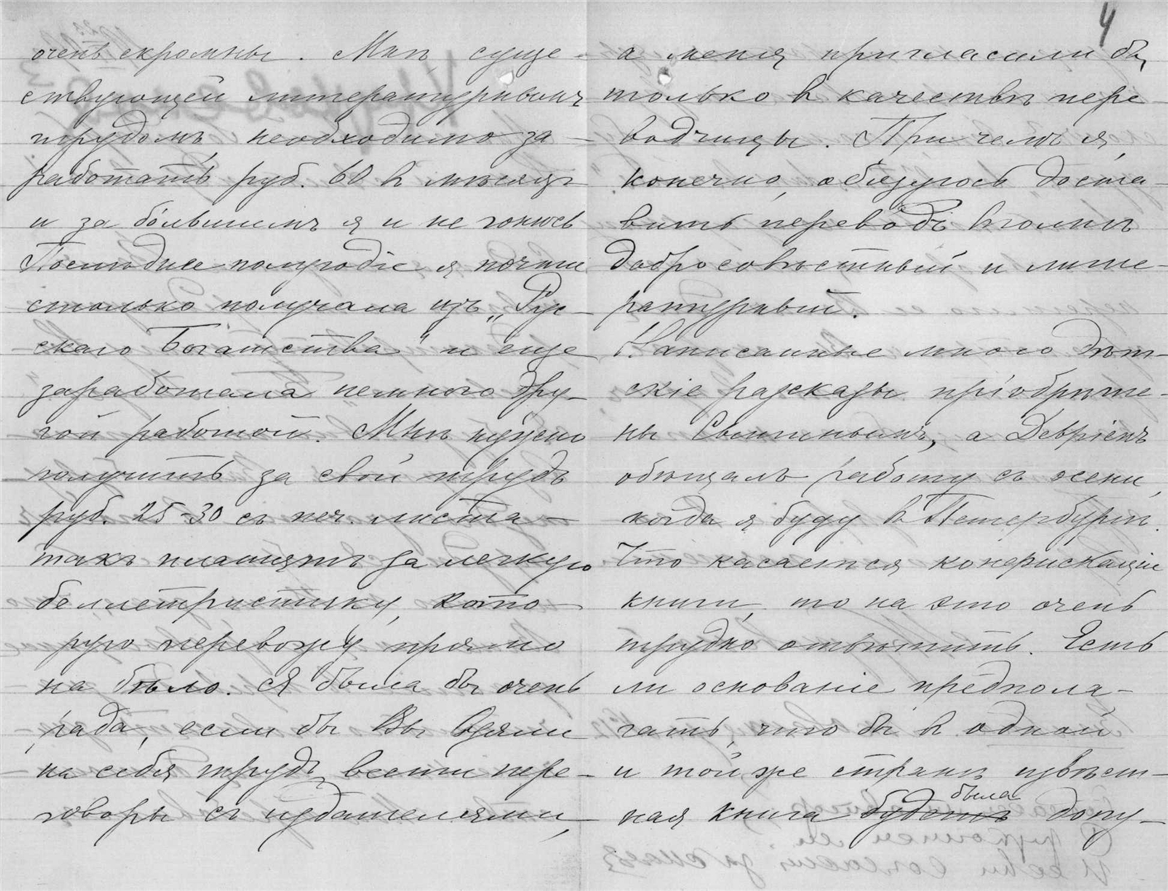 очень скромны. Мнѣ суще-
ствующей литературнымъ
трудомъ необходимо за-
работать руб. 60 в мѣсяцъ
и за бо́льшимъ я и не гонюсь
Последнее полугодіе я почти
столько получала изъ „Рус-
скаго Богатства" и еще
заработала немного дру-
гой работой. Мнѣ нужно
получить за свой трудъ
руб. 25-30 съ печ. листа -
такъ платятъ за легкую
беллетристику, кото-
рую перевожу прямо
на бѣло. Я была бы очень
рада, если бы Вы взяли
на себя трудъ вести пере-
говоры съ издателями,
4
а меня пригласили бы
только в качествѣ пере
водчицы. При чемъ я,
конечно, обязуюсь доста-
вить переводъ вполнѣ
добросовѣстный и лите-
ратурный.
Написанные много дѣт-
скіе разсказы пріобрѣте-
ны Сытинымъ, а Девріенъ
обѣщалъ работу съ осени,
когда я буду в Петербургѣ.
Что касается конфискаціи
книги, то на это очень
трудно отвѣтить. Есть
ли основаніе предпола-
гать, что бы в одной
и той же странѣ извѣст-
ная книга будетъ была допу-